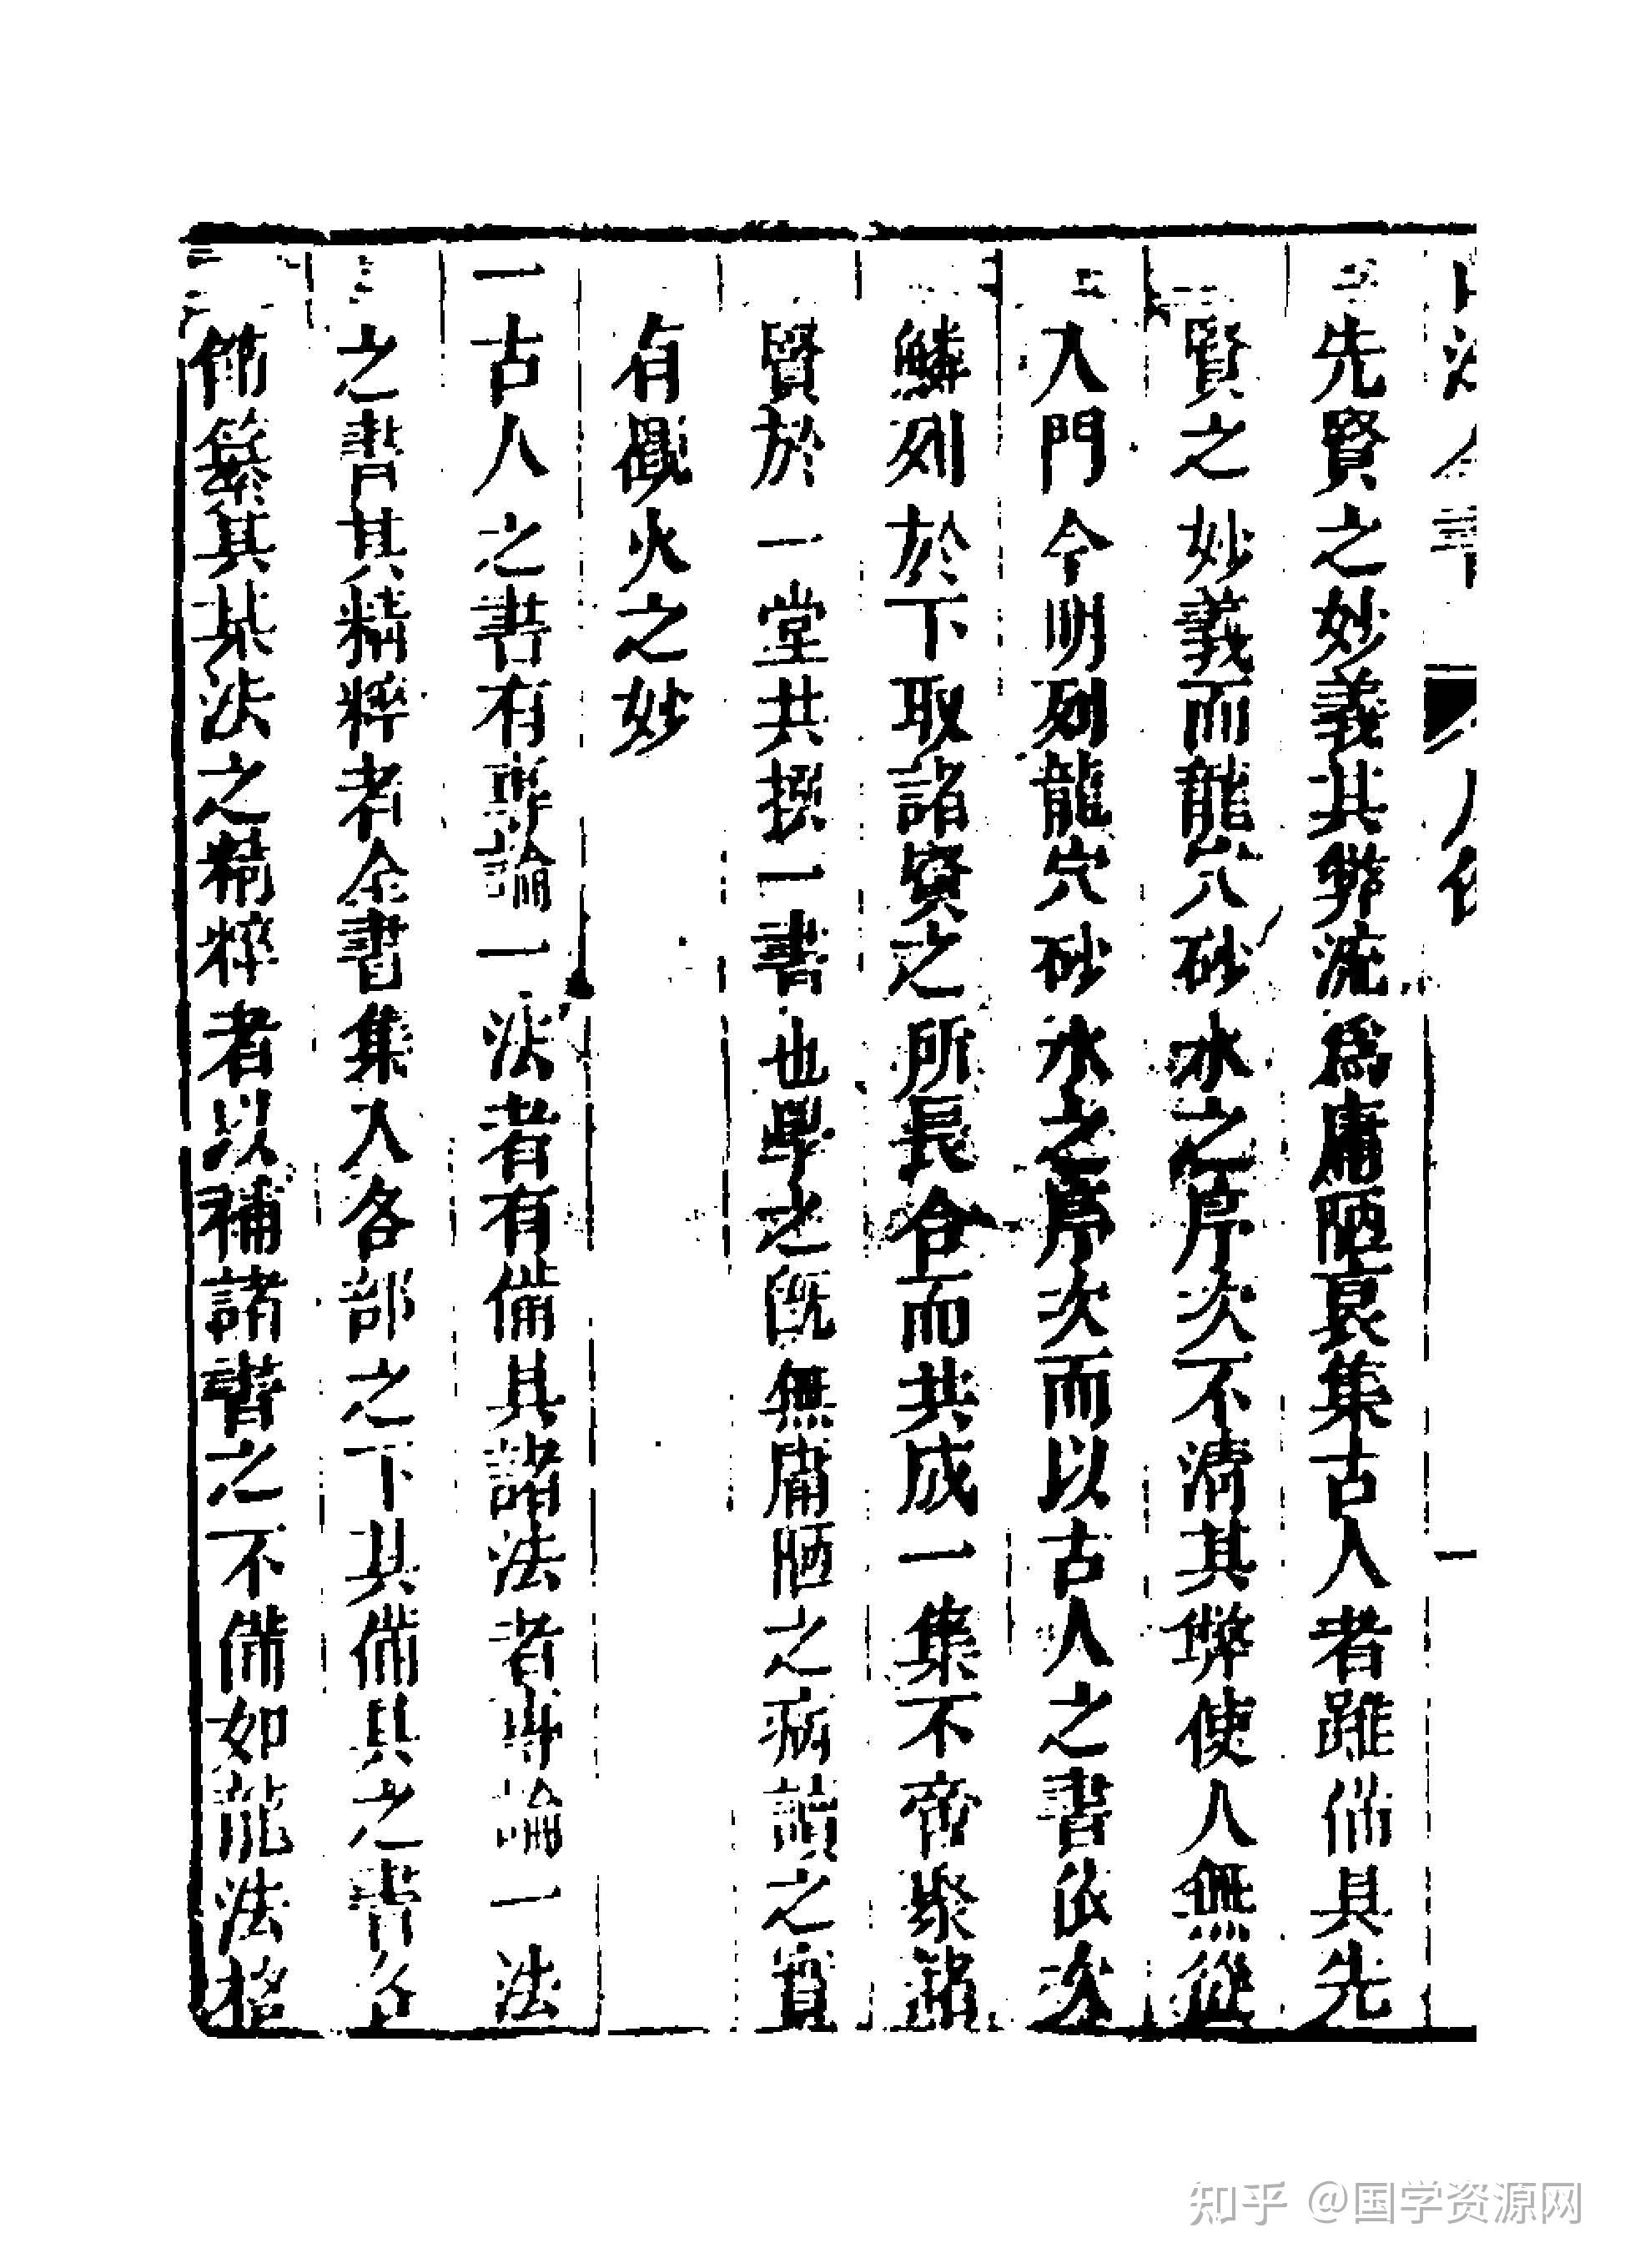 先賢之妙義其弊流為庸陋裒集古人者雖備具先
賢之妙義而龍穴砂水之序次不清其弊使人無從
入門今明列龍穴砂水之序次而以古人之書依次
鱗列於下取諸賢之所長合而共成一集不啻聚諸
賢於一堂共撰一書也學之既無庸陋之病讀之實
有觀火之妙
一古人之書有專論一法者有備具諸法者專論一法
之書其精粹者全書集入各部之下具備具之書各
節纂其某法之精粹者以補諸書之不備如龍法格
知乎 @国学资源网